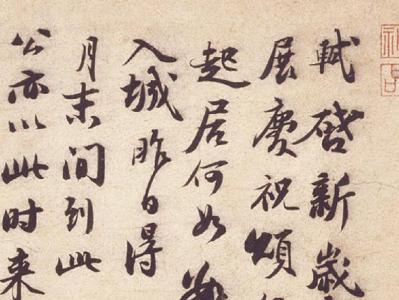 軾啓新歲
展慶祝頌
起居何如
入城昨日得
月末間到此
公亦以此时来